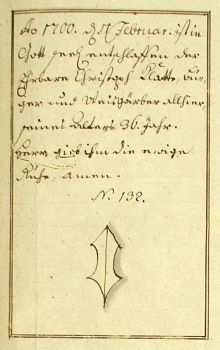 Ao 1700. d. 17 Februar. ist in
Gott seel. entschlaffen der
Ehrbare Christoph Klatte, bür-
ger und Weisgärber allhier,
seines Alters 36. Jahr.
Herr gieb ihm die ewige
Ruhe, Amen.
N. 132.